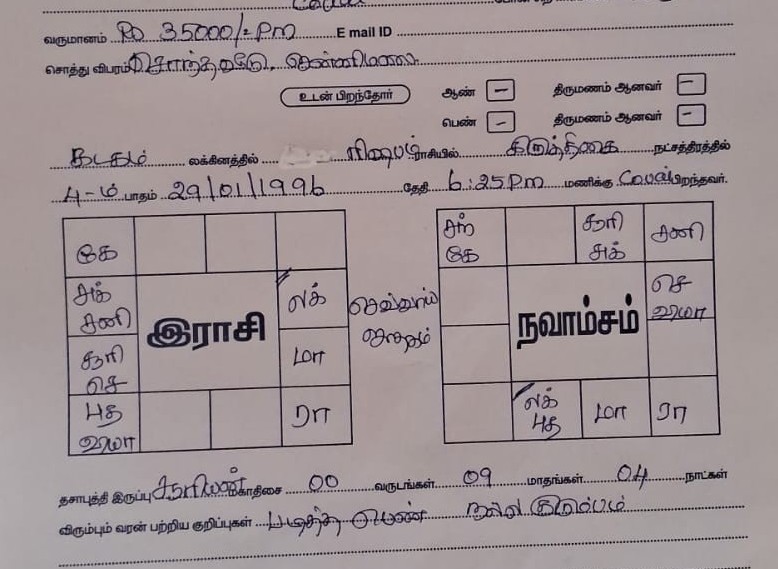 வருமானம் Rs 35000/= PM E mail ID
சொத்து விபரம் சொந்தவீடு, சென்னிமலை
உடன் பிறந்தோர் ஆண் – திருமணம் ஆனவர் –
பெண் – திருமணம் ஆனவர் –
கடகம் லக்கினத்தில் ரிஷபம் ராசியில் கிருத்திகை நட்சத்திரத்தில்
4-ம் பாதம் 29/01/1996 தேதி 6:25PM மணிக்கு பிறந்தவர்.
கே
சுக்
சனி
லக்
இராசி
சூரி
செ
மா
புத
ரா
செவ்வாய்
கே
சூரி
சுக்
சனி
செ
நவாம்சம்
லக்
புத
மா
ரா
தசாபுத்தி இருப்பு சூரியன் மகாதிசை 00 வருடங்கள் 09 மாதங்கள் 04 நாட்கள்
விரும்பும் வரன் பற்றிய குறிப்புகள் படித்த பெண் நல்ல குடும்பம்